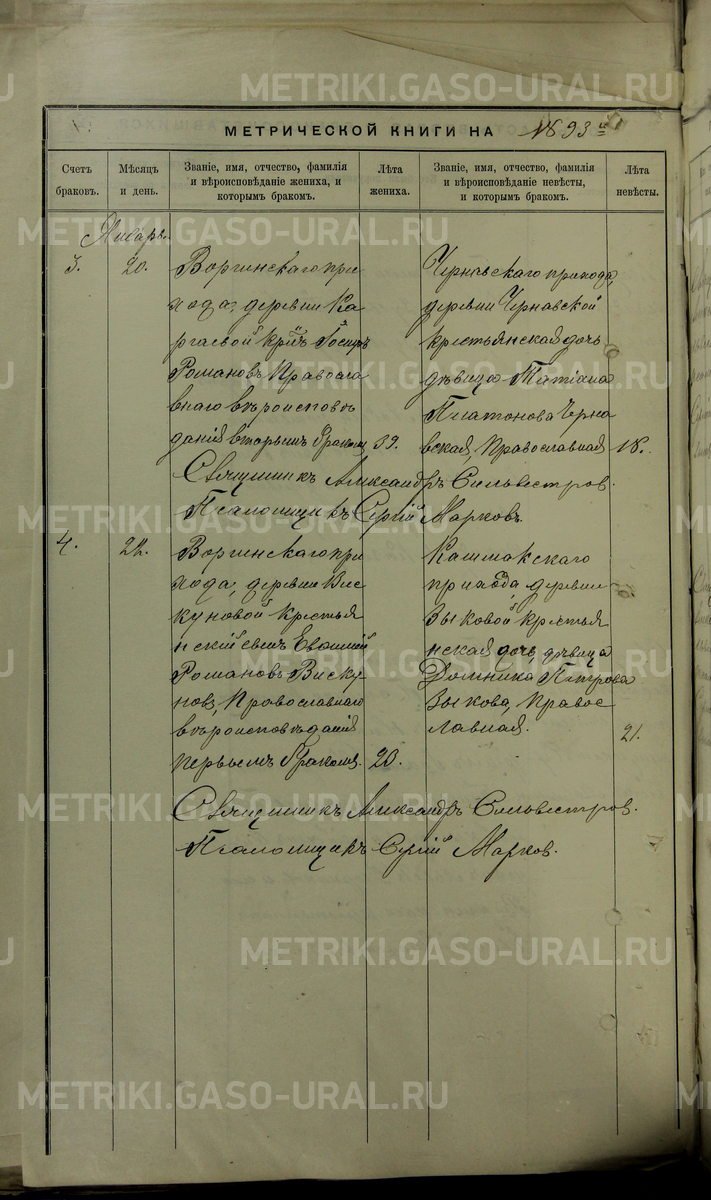 МЕТРИЧЕСКОЙ КНИГИ НА 1893
Счетъ браковъ.
Мѣсяцъ и день.
Званіе, имя, отчество, фамилія и вѣроисповѣданіе жениха, и которымъ бракомъ.
Лѣта жениха.
Званіе, имя, отчество, фамилія и вѣроисповѣданіе невѣсты, и которымъ бракомъ.
Лѣта невѣсты.
Январь.
3.
20.
Воргинскаго при
хода, деревни Ка
ргаевой
Романовъ Правосла
внаго вѣроисповѣ
данія вторымъ бракомъ
39.
Чернавскаго прихода,
деревни Чернавской
крестьянская дочь
дѣвица Татіана
Платонова Черна
вская, Православная
18.
Священникъ Александръ Сильвестров.
Псаломщикъ Сергій Марковъ.
4.
Воргинскаго при
хода, деревни Вис
куновой крестья
нскій сынъ Евѳимій
Романовъ Виску
новъ, Православнаго
вѣроисповѣданія
первымъ бракомъ.
20.
Кашмакскаго
прихода деревни
Зыковой крестья
нская дочь дѣвица
Домника Петрова
Зыкова, Правос
лавная.
21.
Священникъ Александръ Сильвестров.
Псаломщикъ Сергій Марков.
METRIKI.GASO-URAL.RU